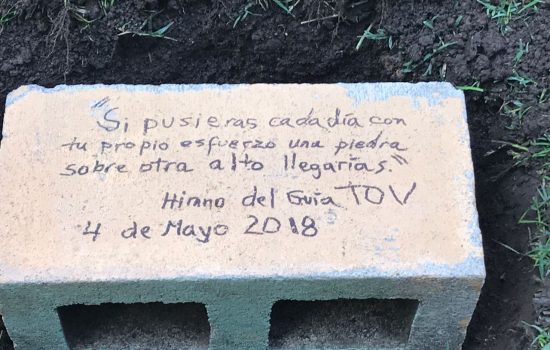 "Si pusieras cada día con
tu propio esfuerzo una piedra
sobre otra alto llegarías."
Himno del Guía TOV
4 de Mayo 2018